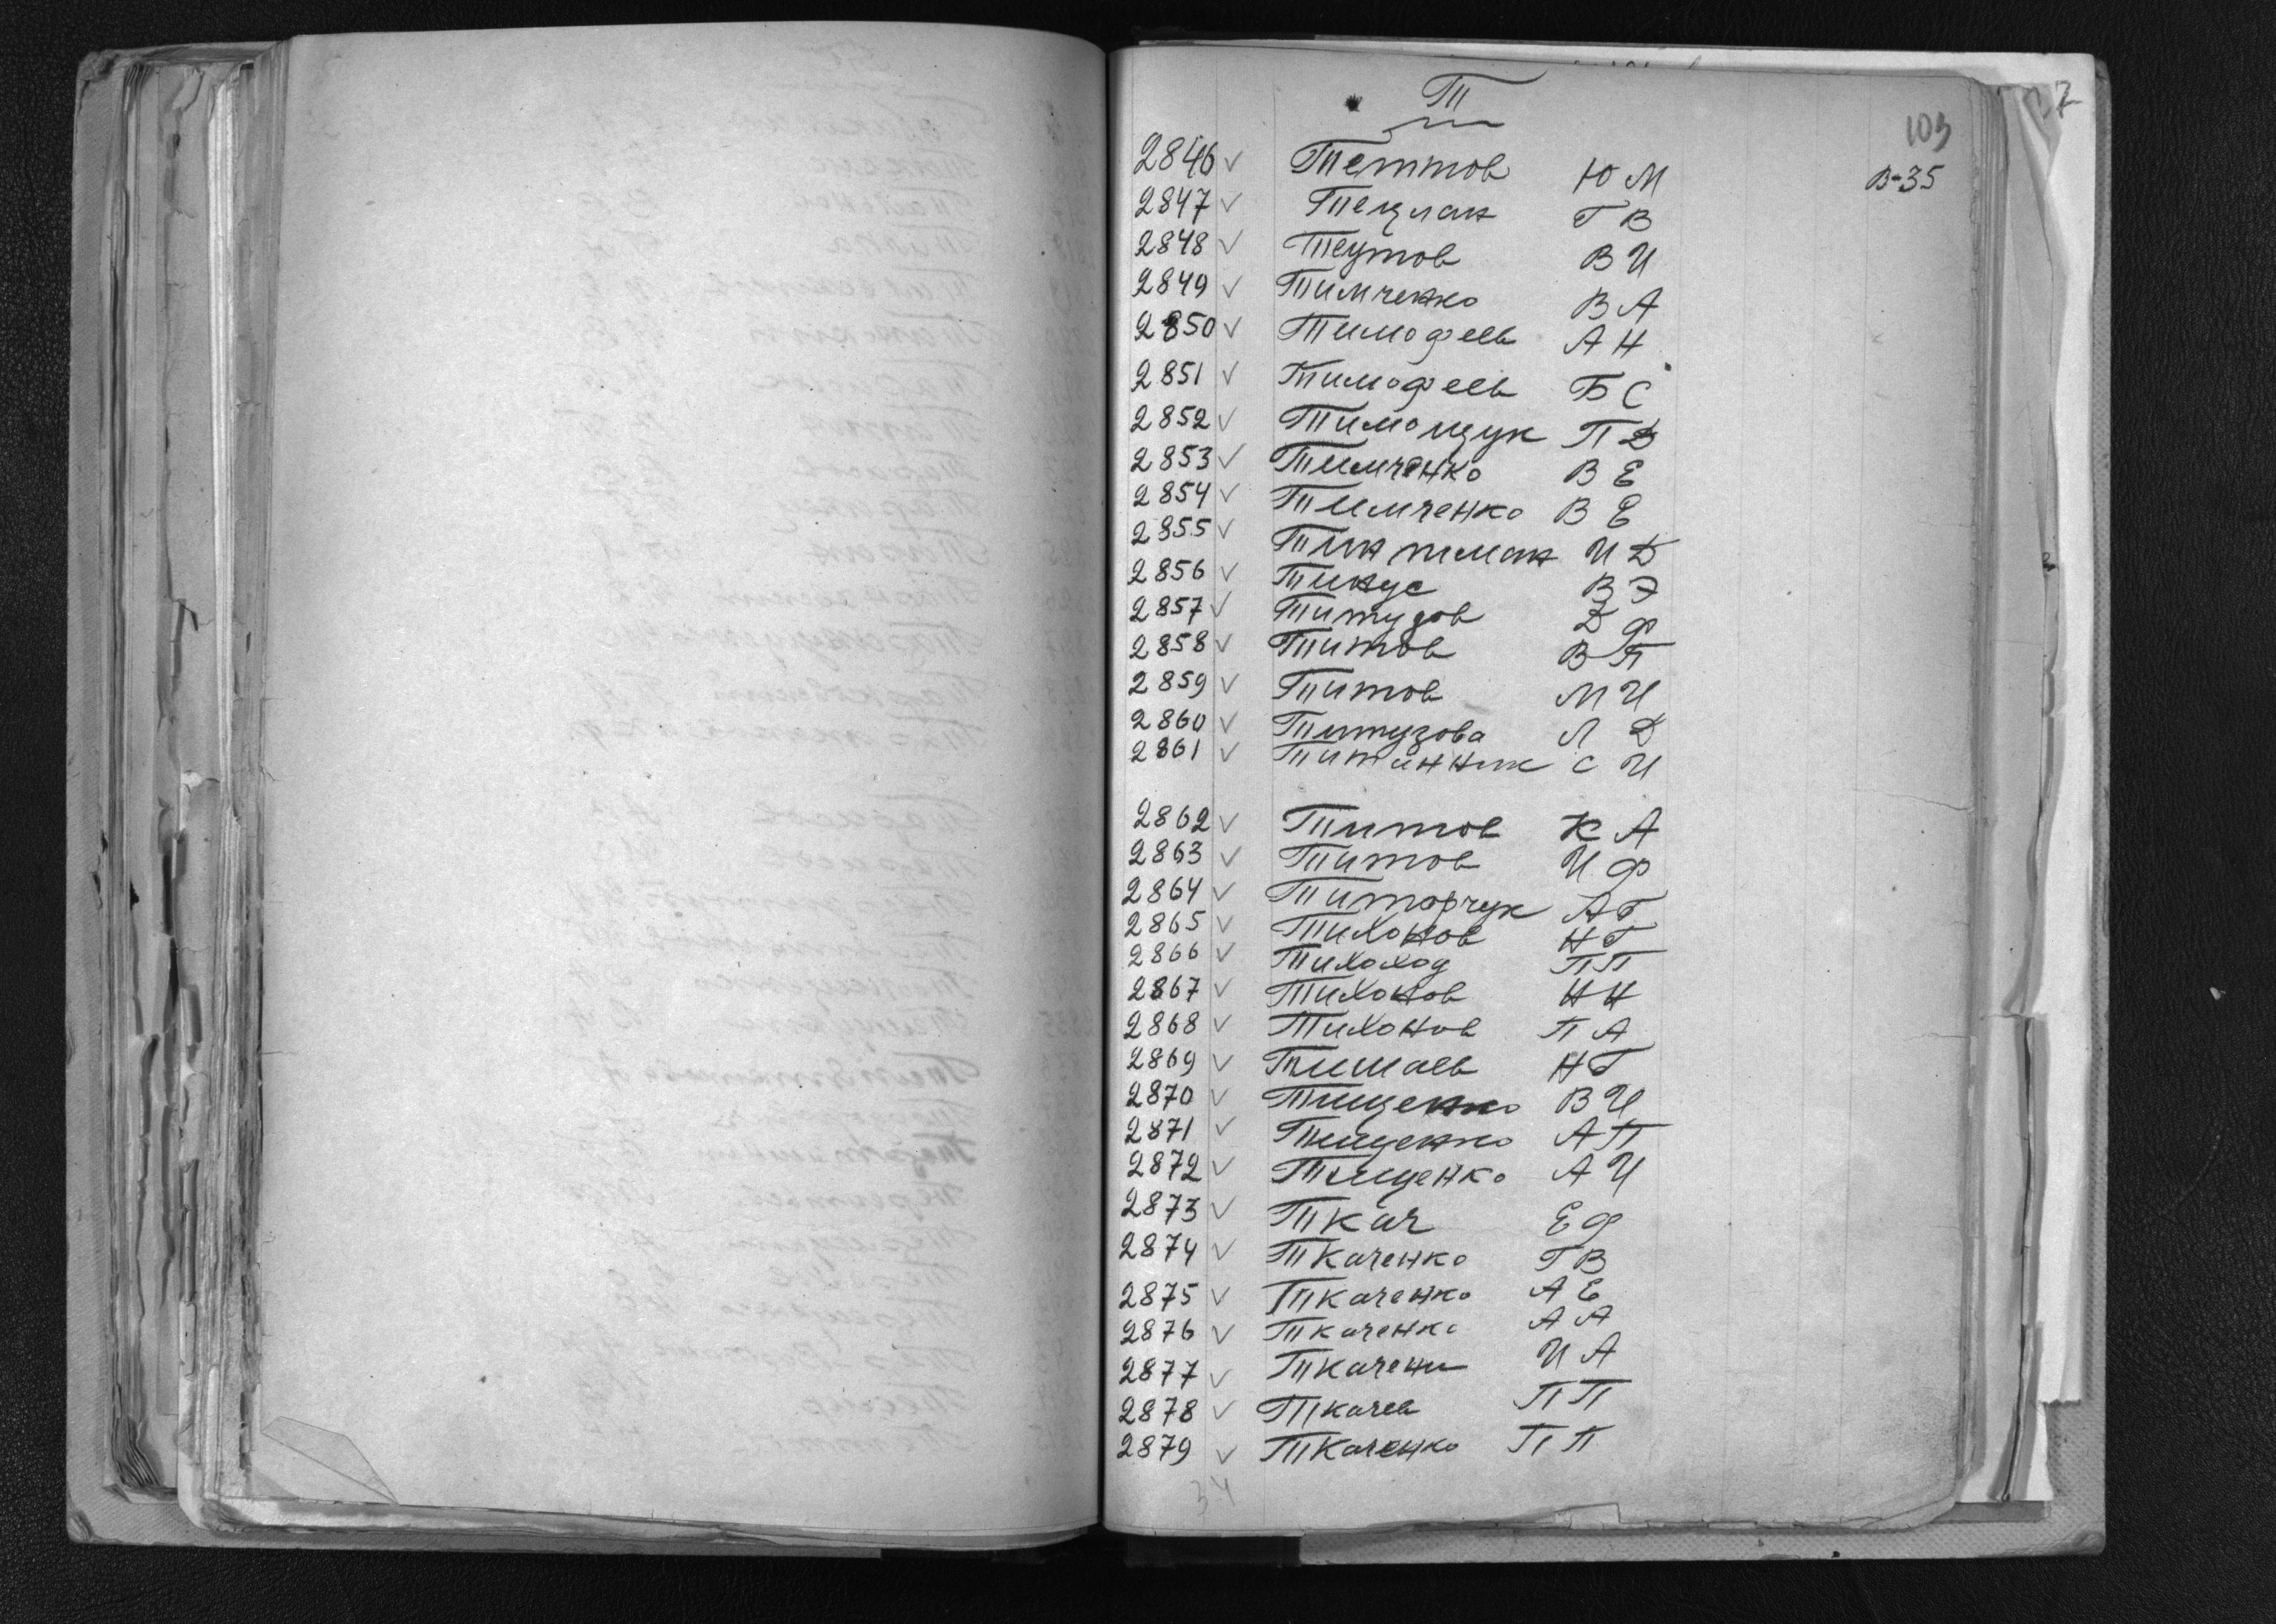 Т
103
2846 ✓ Теттов Ю М В-35
2847 ✓ Тецлан Г В
2848 ✓ Теутов В И
2849 ✓ Тимченко В А
2850 ✓ Тимофеев А Н
2851 ✓ Тимофеев Б С
2852 ✓ Тимощук П Д
2853 ✓ Тимченко В Е
2854 ✓ Тимченко В Е
2855 ✓ И Д
2856 ✓ В Э
2857 ✓ Титудов Д Ф
2858 ✓ Титов В П
2859 ✓ Титов М И
2860 ✓ Титузова Л Д
2861 ✓ С И
2862 ✓ Титов К А
2863 ✓ Титов И Ф
2864 ✓ Титорчук А Г
2865 ✓ Тихонов Н Г
2866 ✓ Тихоход П П
2867 ✓ Тихонов Н Н
2868 ✓ Тихонов П А
2869 ✓ Тишаев Н Г
2870 ✓ Тищенко В И
2871 ✓ Тищенко А П
2872 ✓ Тищенко А И
2873 ✓ Ткач Е Ф
2874 ✓ Ткаченко Г В
2875 ✓ Ткаченко А Е
2876 ✓ Ткаченко А А
2877 ✓ И А
2878 ✓ Ткачев П П
2879 ✓ Ткаченко П П
34